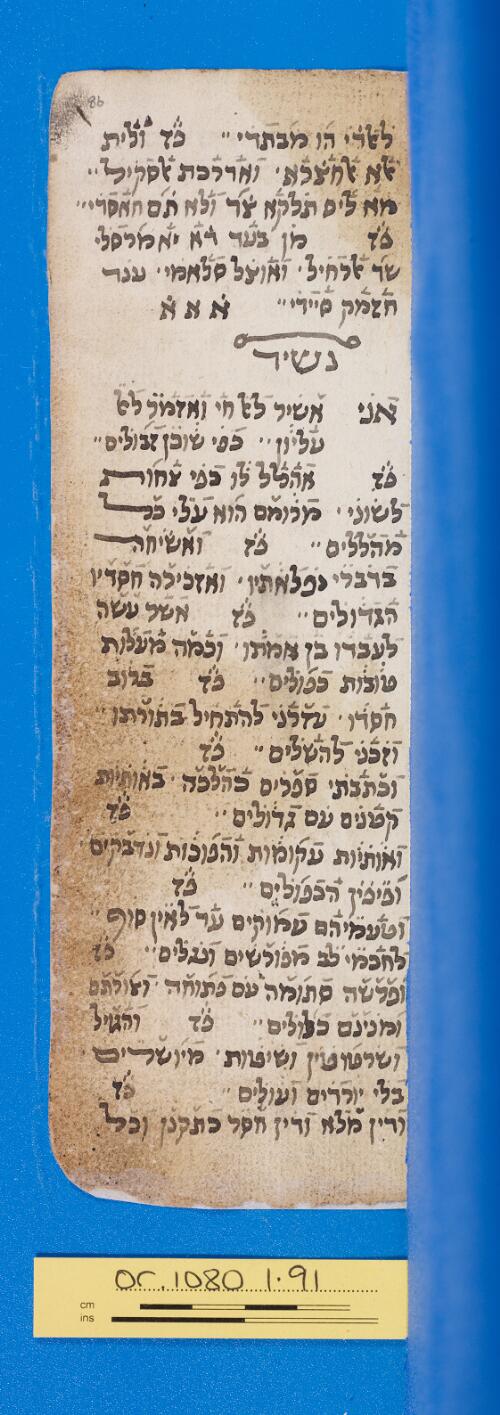 86
לשדי הו מבתדי״ כׄדׄ ולית
מא ליס תלקא צד ולא תם חאסדי״
כׄדׄ מן בעד דא יא מרסלי
שד אלרחיל· ואוצל סלאמי· ענד
סיידי״ א א א
נשיד
אני אשיר לאל חי ואזמר לאל
עליון״ בפי שוכן זבולים״
כׄדׄ אהלל לו בפי צחות
לשוני· מרומם הוא עלי כל
מהללים״ כׄדׄ ואשיחה
בדברי נפלאתיו· ואזכירה חסדיו
הגדולים״ כׄדׄ אשר עשה
לעבדו בן אמתו· וכמה מעלות
טובות כפולים״ כׄדׄ ברוב
חסדו· עזרני להתחיל בתורתו״
וזכני להשלים״ כׄדׄ
וכתבתי ספרים כהלכה· באותיות
קטנים עם גדולים״ כׄדׄ
ואותיות עקומות והפוכות ונדבקים
ופיפין הכפולים״ כׄדׄ
וטעמיהם עמוקים עד לאין סוף״
לחכמי לב מפורשים ונגלים״ כׄדׄ
ופרשה סתומה עם פתוחה·
ומנינם כלולים״ כׄדׄ
ושרטוטין ושיטות· מיושרים
בלי יורדים ועולים״ כׄדׄ
ודין מלא ודין חסר כתקנן וכל
Or.1080 1.91
cm
ins